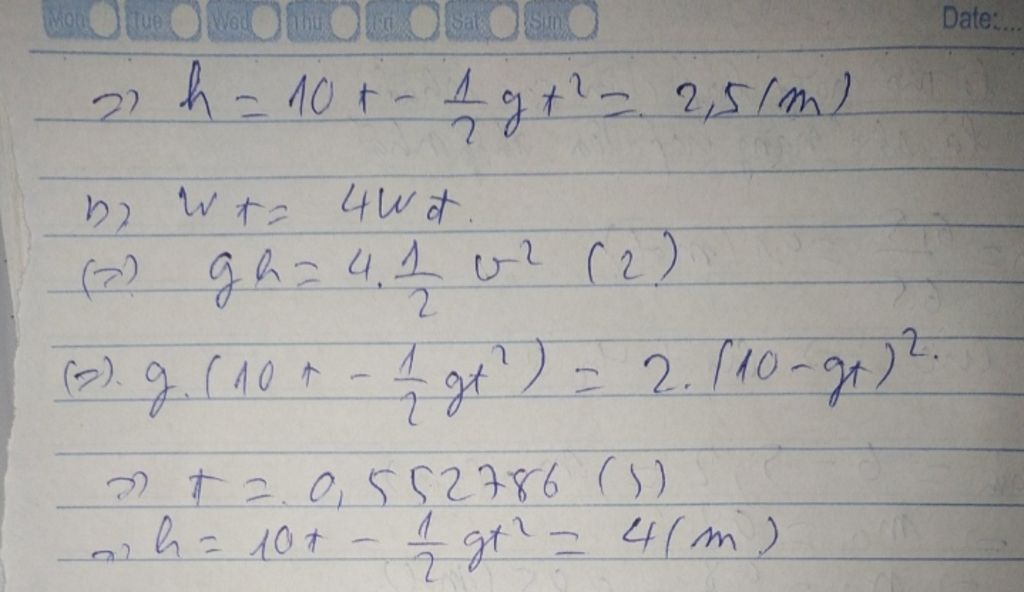 Mon Tue Wed Thu Fri Sat Sun Date:....
=> h = 10t - 1/2 gt² = 2,5 (m)
b) Wt = 4Wđ.
(=>) gh = 4.1/2 v² (2)
(=>). g.(10t - 1/2 gt²) = 2.(10-gt)².
=> t = 0,552786 (s)
=> h = 10t - 1/2 gt² = 4(m)